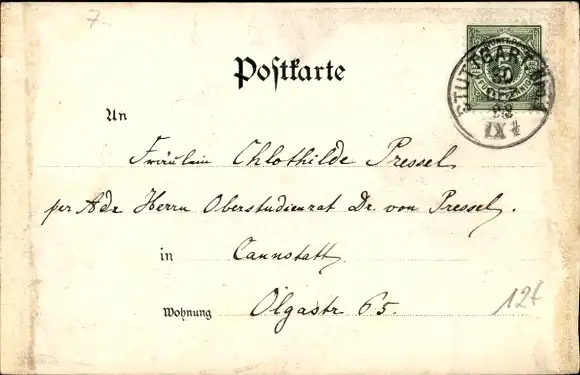 7.
Postkarte
STUTTGART
30
DEZ
98
IX
FÜNF PFENNIG
An
Fräulein Chlothilde Pressel
per Adr Herrn Oberstudienrat Dr. von Pressel.
in Cannstatt
Wohnung Olgastr 65.
12t